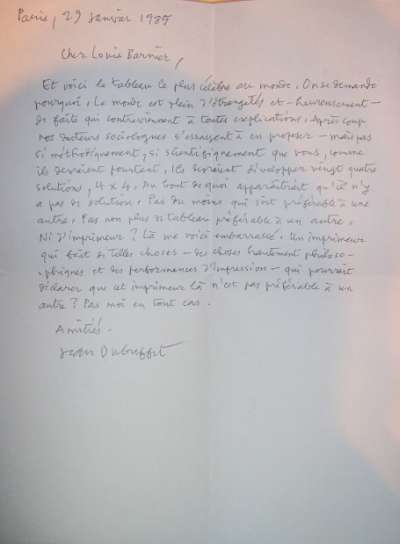 Paris, 29 janvier 1985
Cher Louis Barnier,
Et voici le tableau le plus célèbre au monde. On se demande
pourquoi. Le monde est plein d'étrangetés et - heureusement -
de faits qui contreviennent à toutes explications. Après coup
nos docteurs sociologues s'essayent à en proposer - mais pas
si méthodiquement, si scientifiquement que vous, comme
ils devraient pourtant. Ils devraient développer vingt quatre
solutions, 4 x 6. Au bout de quoi apparaîtrait qu'il n'y
a pas de solution. Pas du moins qui soit préférable à une
autre. Pas non plus de tableau préférable à un autre.
Ni d'imprimeur? Là me voici embarrassé. Un imprimeur
qui fait de telles choses - des choses hautement philoso-
phiques et des performances d'impression - qui pourrait
déclarer que cet imprimeur là n'est pas préférable à un
autre? Pas moi en tout cas.
Amitiés.
Jean Dubuffet